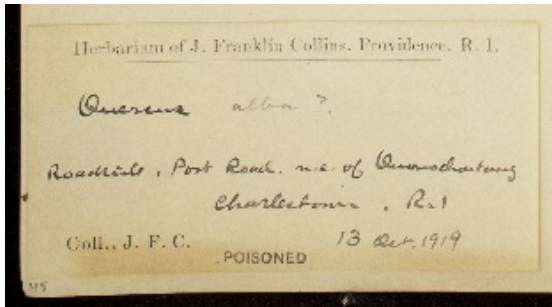 Herbarium of J. Franklin Collins, Providence, R. I.
Quercus alba ?
Roadside, Post Road, n.e. of Quonochontaug
Charlestown, R.I
Coll., J. F. C. 13 Oct. 1919
POISONED